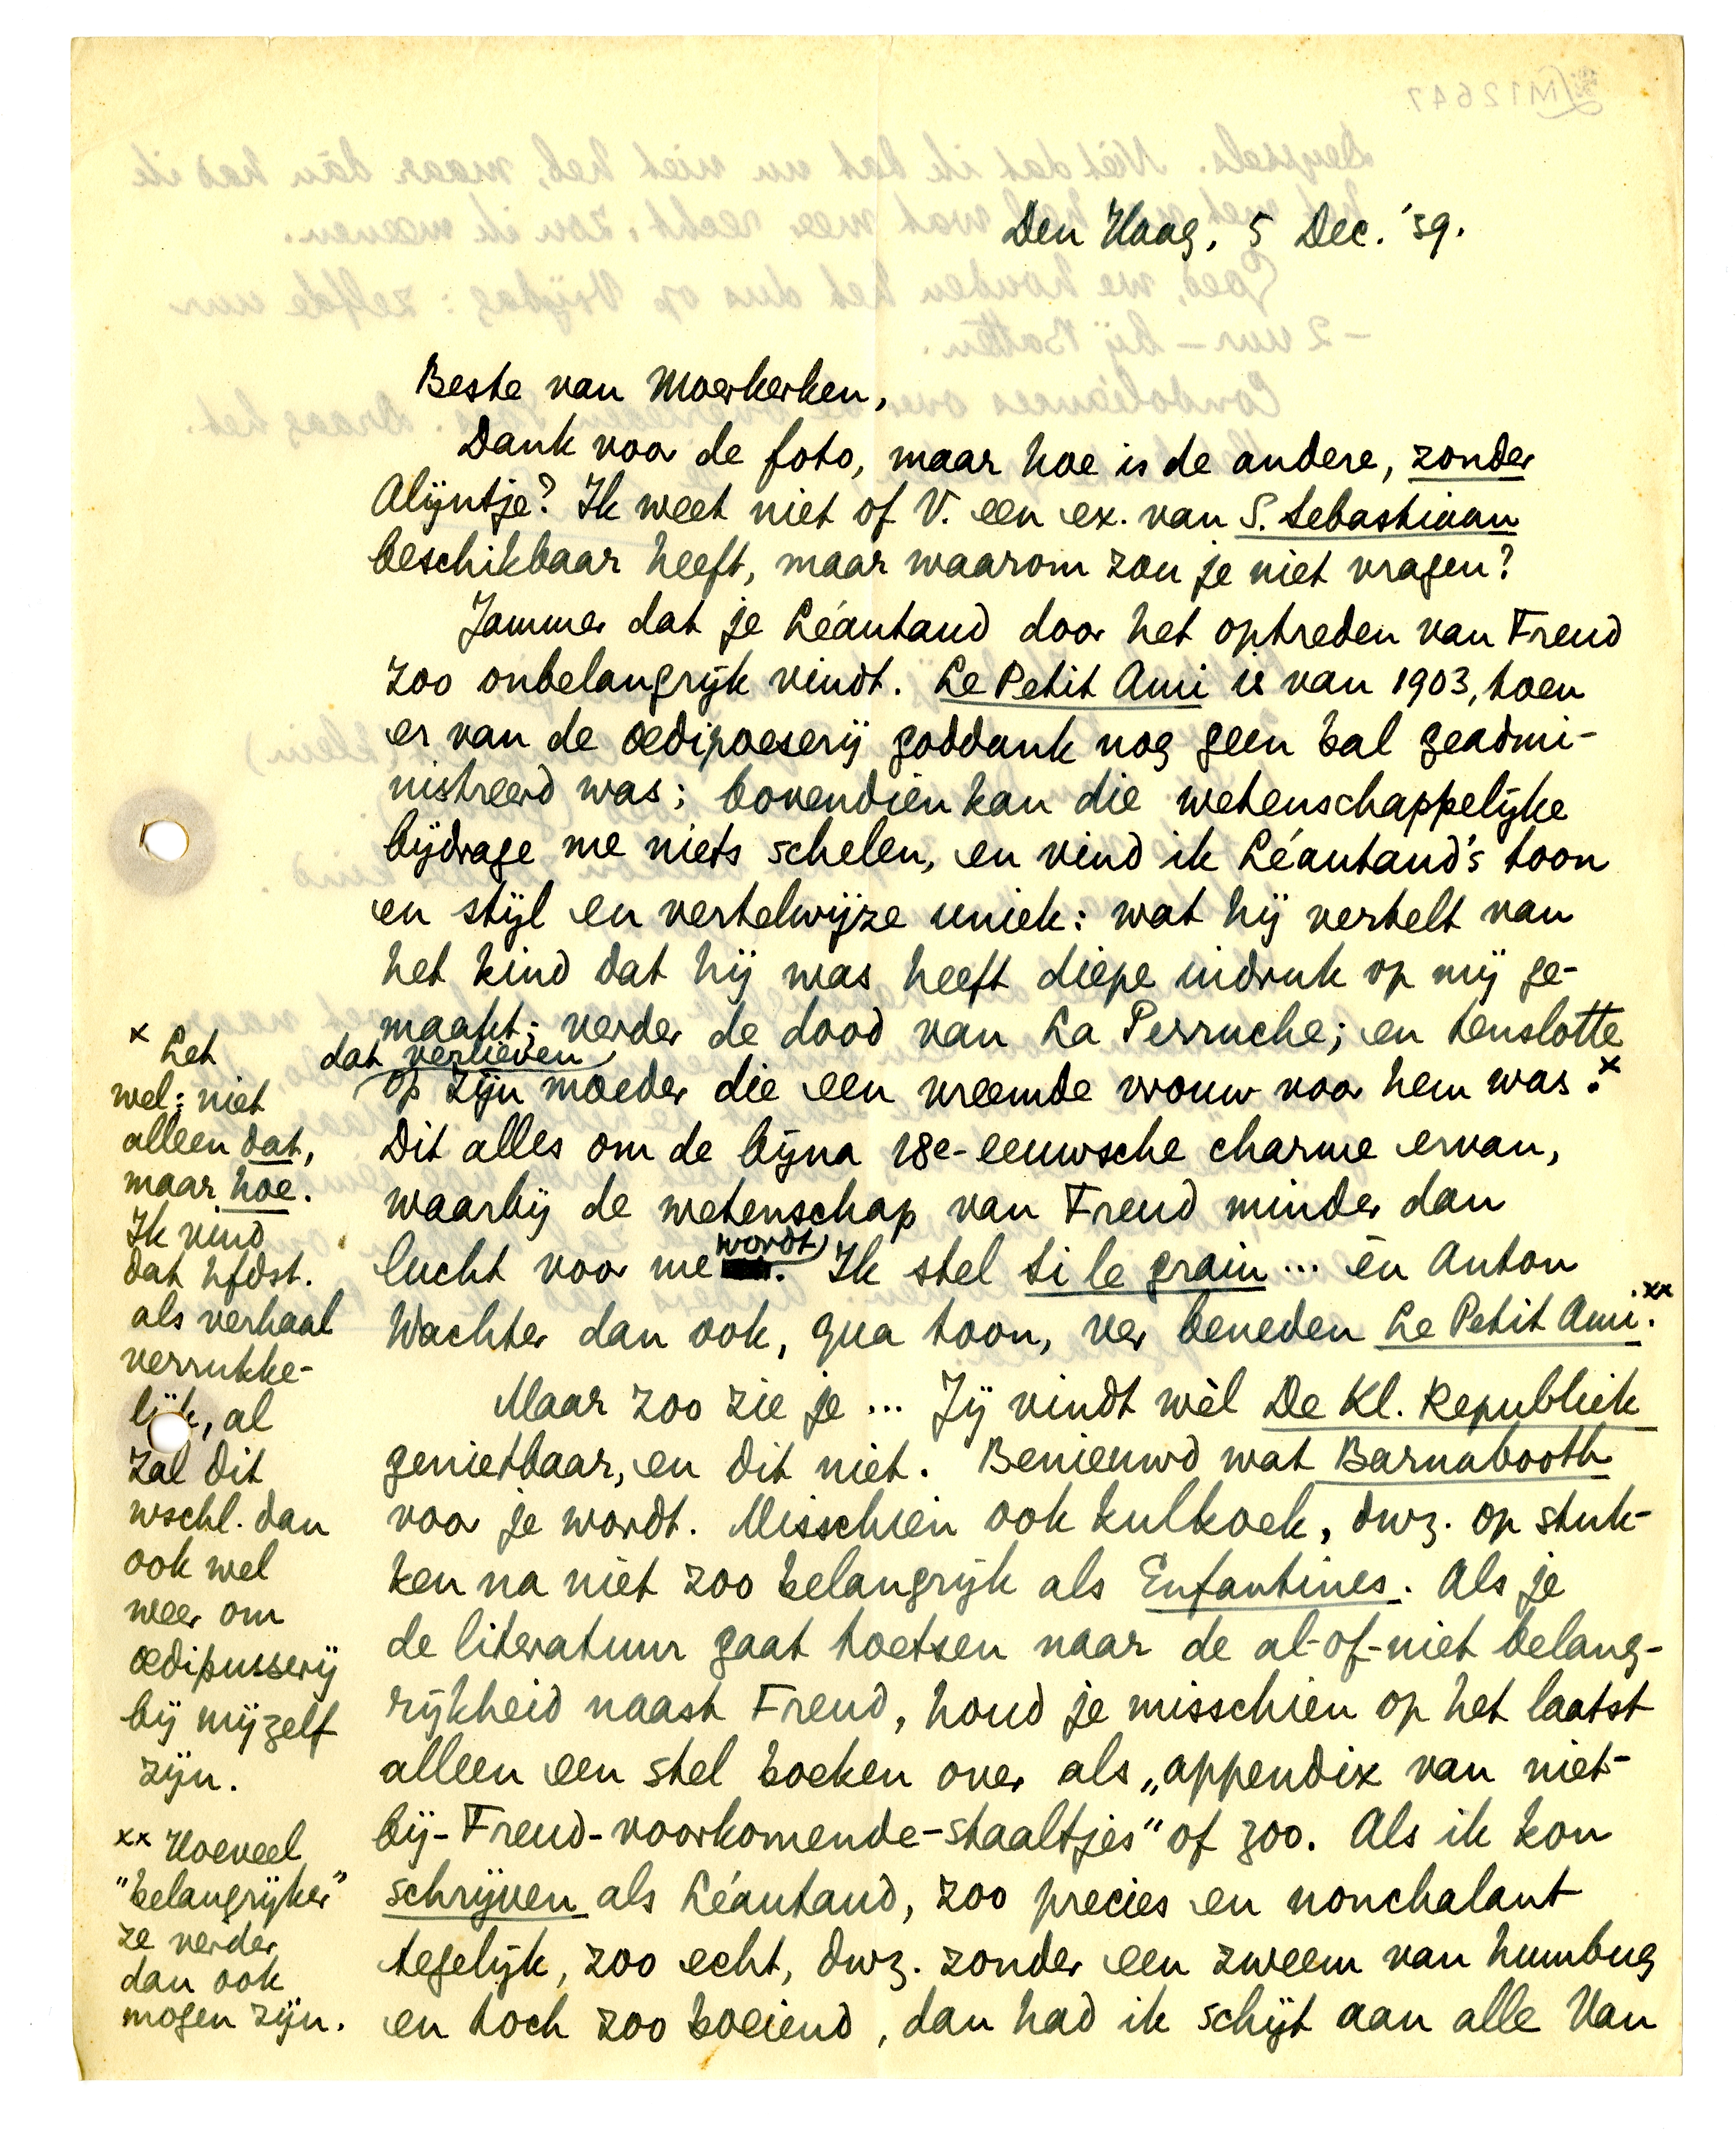 Den Haag, 5 Dec. '39.
Beste van Moerkerken,
Dank voor de foto, maar hoe is de andere, zonder
Alijntje? Ik weet niet of V. een ex. van S. Sebastiaan
beschikbaar heeft, maar waarom zou je niet vragen?
Jammer dat je Léautaud door het optreden van Freud
zoo onbelangrijk vindt. Le Petit Ami is van 1903, toen
er van de oedipoeserij goddank nog geen bal geadmi-
nistreerd was; bovendien kan die wetenschappelijke
bijdrage me niets schelen, en vind ik Léautaud's toon
en stijl en vertelwijze uniek: wat hij vertelt van
het kind dat hij was heeft diepe indruk op mij ge-
maakt; verder de dood van La Perruche; en tenslotte
dat verlieven
op zijn moeder die een vreemde vrouw voor hem was.x
Dit alles om de bijna 18e-eeuwsche charme ervan,
waarbij de wetenschap van Freud minder dan
lucht voor me wordt. Ik stel Si le grain... èn Anton
Wachter dan ook, qua toon, ver beneden Le Petit Ami.xx
Maar zoo zie je... Jij vindt wèl De Kl. Republiek
genietbaar, en dit niet. Benieuwd wat Barnabooth
voor je wordt. Misschien ook kulkoek, dwz. op stuk-
ken na niet zoo belangrijk als Enfantines. Als je
de literatuur gaat toetsen naar de al-of-niet belang-
rijkheid naast Freud, houd je misschien op het laatst
alleen een stel boeken over als „appendix van niet-
bij-Freud-voorkomende-staaltjes" of zoo. Als ik kon
schrijven als Léautaud, zoo precies en nonchalant
tegelijk, zoo echt, dwz. zonder een zweem van humbug
en toch zoo boeiend, dan had ik schijt aan alle Van
x Let
wel: niet
alleen dat,
maar hoe.
Ik vind
dat hfdst.
als verhaal
verrukke-
lijk, al
zal dit
wschl. dan
ook wel
weer om
oedipusserij
bij mijzelf
zijn.
xx Hoeveel
"belangrijker"
ze verder
dan ook
mogen zijn.